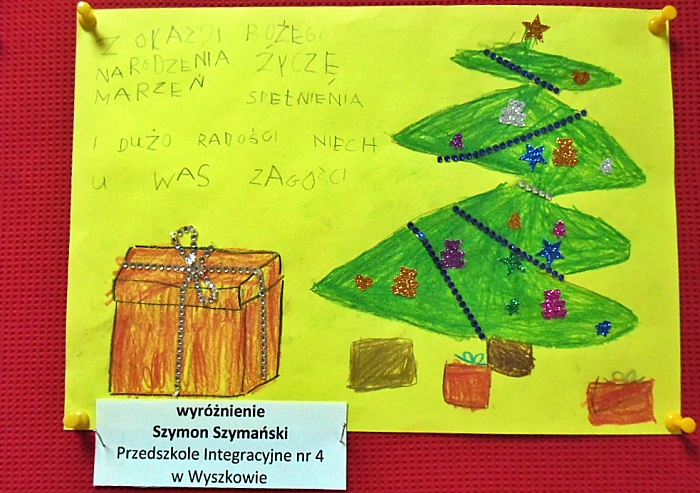 Z OKAZJI BOŻEGO
NARODZENIA ŻYCZĘ
MARZEŃ SPEŁNIENIA
I DUŻO RADOŚCI NIECH
U WAS ZAGOŚCI
wyróżnienie
Szymon Szymański
Przedszkole Integracyjne nr 4
w Wyszkowie